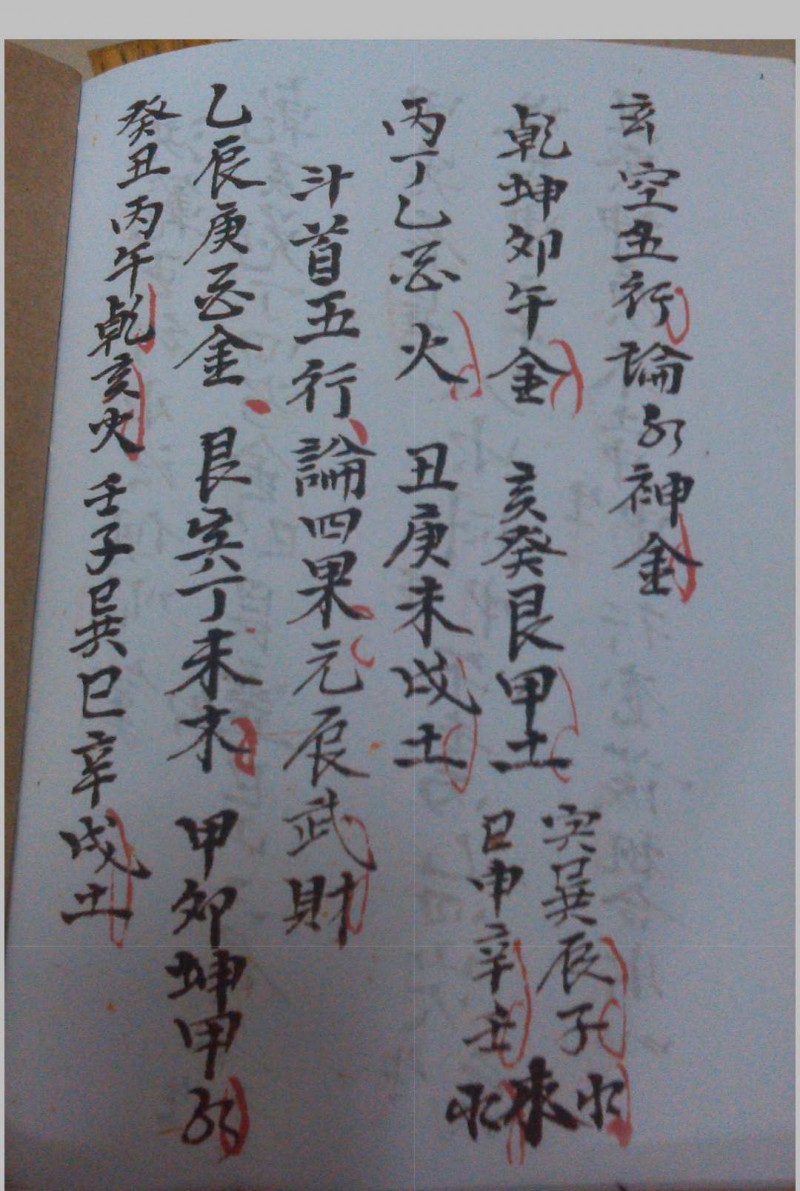 玄空五行論水神金
乾坤卯午金 亥癸艮甲土 寅巽辰子水
巳申辛壬 來水
丙丁乙酉火 丑庚未戌土
斗首五行論四果元辰武財
乙辰庚酉金 艮寅丁未木 甲卯坤申水
癸丑丙午乾亥火 壬子巽巳辛戌土